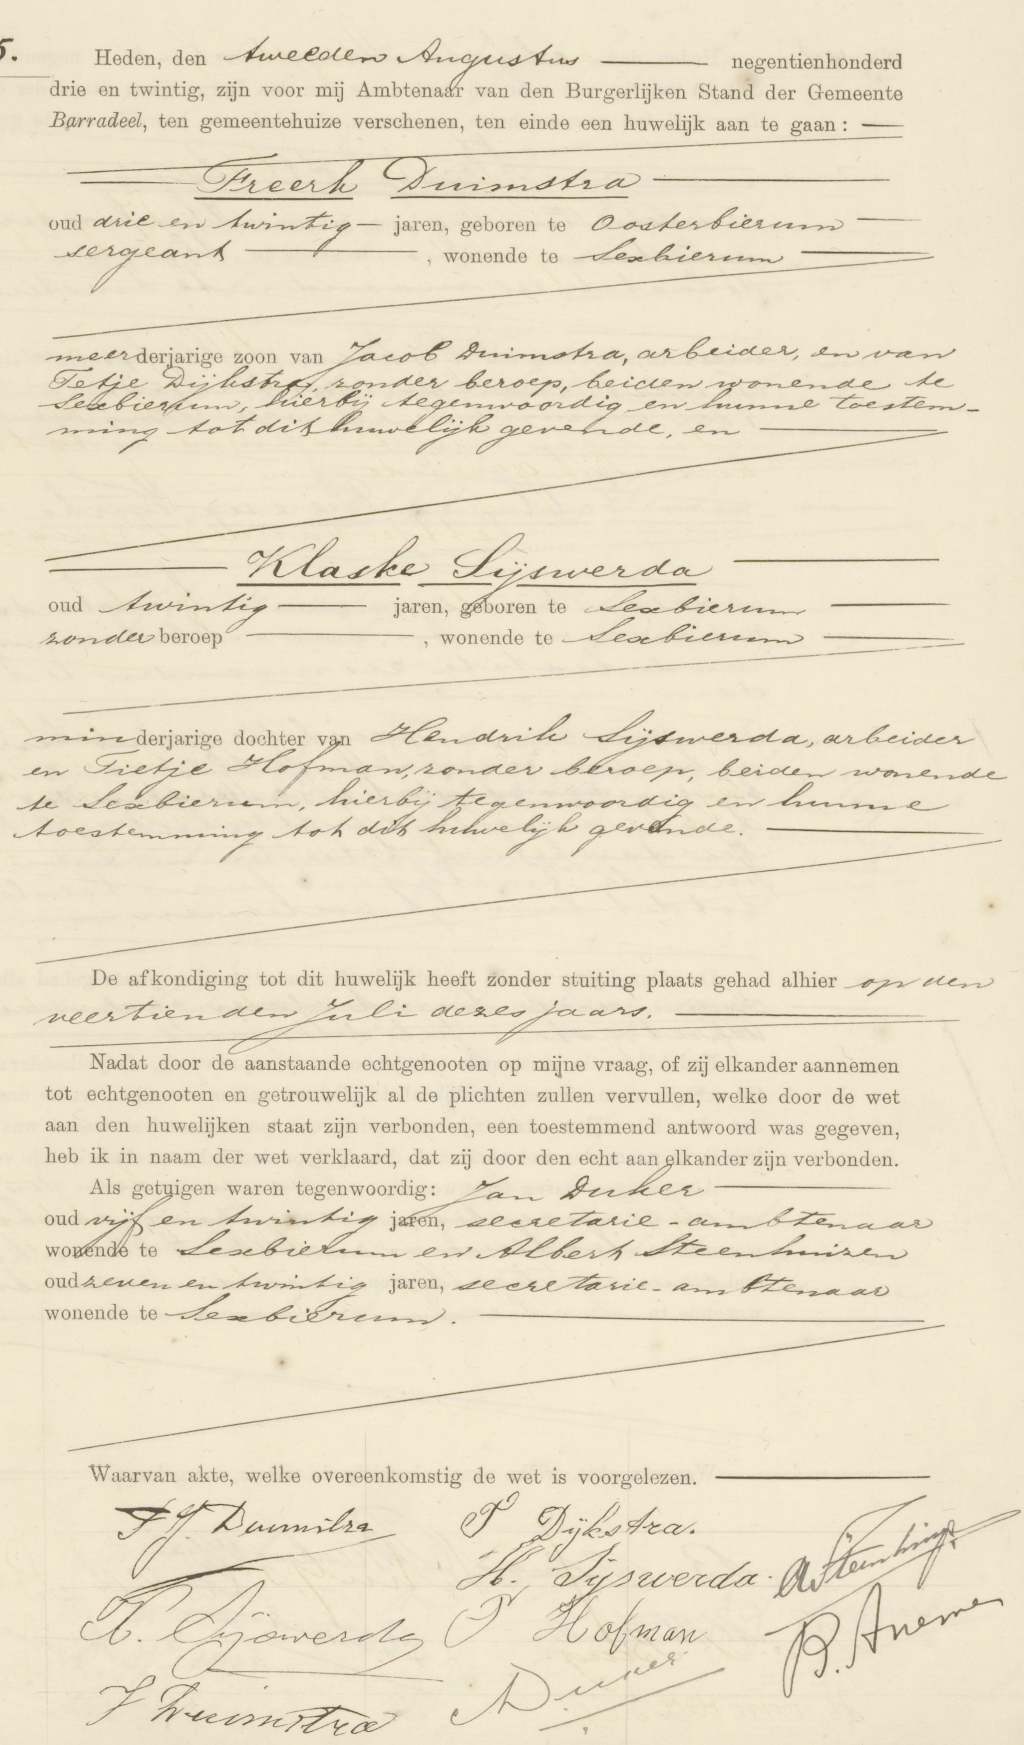 5.
Heden, den tweeden Augustus negentienhonderd
drie en twintig, zijn voor mij Ambtenaar van den Burgerlijken Stand der Gemeente
Barradeel, ten gemeentehuize verschenen, ten einde een huwelijk aan te gaan:
Freerk Duimstra
oud drie en twintig jaren, geboren te Oosterbierum
sergeant, wonende te Sexbierum
meerderjarige zoon van Jacob Duimstra, arbeider, en van
Tetje Dijkstra, zonder beroep, beiden wonende te
Sexbierum, hierbij tegenwoordig en hunne toestem-
ming tot dit huwelijk gevende, en
Klaske Sijswerda
oud twintig jaren, geboren te Sexbierum
zonder beroep, wonende te Sexbierum
minderjarige dochter van Hendrik Sijswerda, arbeider
en Tietje Hofman, zonder beroep, beiden wonende
te Sexbierum, hierbij tegenwoordig en hunne
toestemming tot dit huwelijk gevende.
De afkondiging tot dit huwelijk heeft zonder stuiting plaats gehad alhier op den
veertienden Juli dezes jaars.
Nadat door de aanstaande echtgenooten op mijne vraag, of zij elkander aannemen
tot echtgenooten en getrouwelijk al de plichten zullen vervullen, welke door de wet
aan den huwelijken staat zijn verbonden, een toestemmend antwoord was gegeven,
heb ik in naam der wet verklaard, dat zij door den echt aan elkander zijn verbonden.
Als getuigen waren tegenwoordig: Jan Duker
oud vijf en twintig jaren, secretarie-ambtenaar
wonende te Sexbierum en Albert Steenhuizen
oud zeven en twintig jaren, secretarie-ambtenaar
wonende te Sexbierum.
Waarvan akte, welke overeenkomstig de wet is voorgelezen.
F J. Duimstra
T Dijkstra.
H. Sijswerda.
K. Sijswerda
T Hofman
B. Anema
J Duimstra